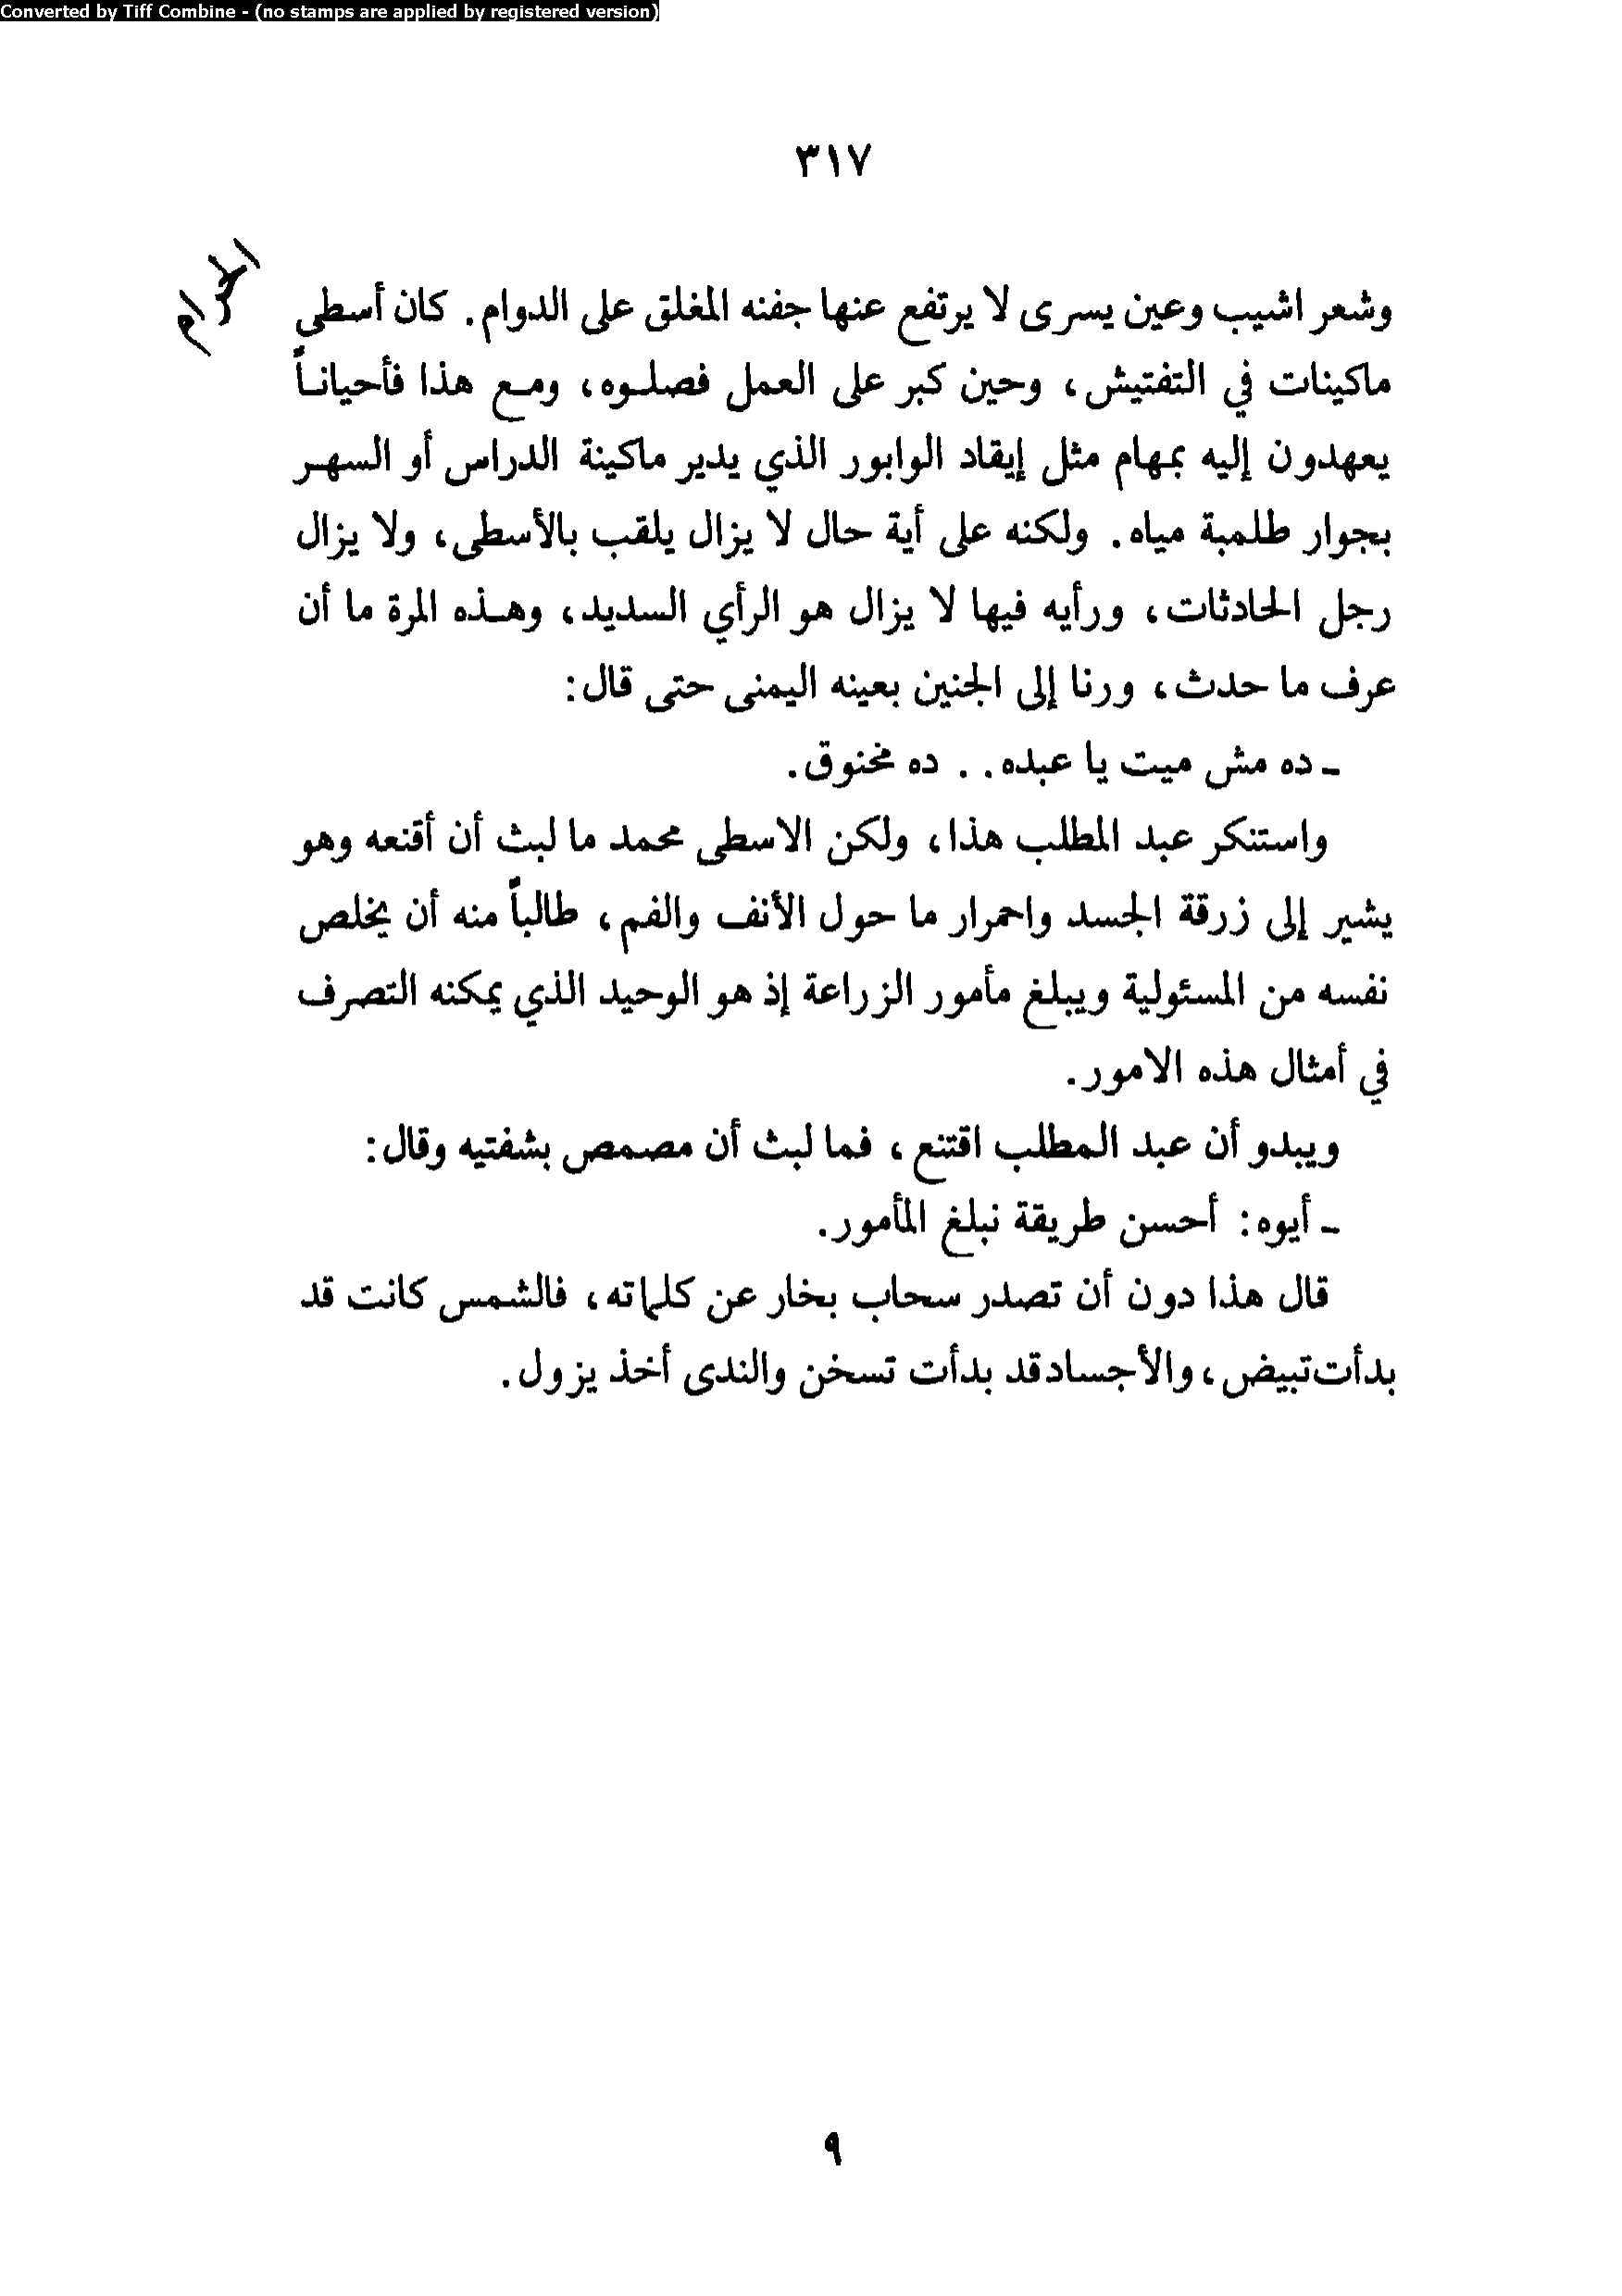 Converted by Tiff Combine - (no stamps are applied by registered version)
٣١٧
الحرام
وشعر اشيب وعين يسرى لا يرتفع عنها جفنه المغلق على الدوام. كان أسطى
ماكينات في التفتيش، وحين كبر على العمل فصلوه، ومع هذا فأحياناً
يعهدون إليه بمهام مثل إيقاد الوابور الذي يدير ماكينة الدراس أو السهر
بجوار طلمبة مياه. ولكنه على أية حال لا يزال يلقب بالأسطى، ولا يزال
رجل الحادثات، ورأيه فيها لا يزال هو الرأي السديد، وهذه المرة ما أن
عرف ما حدث، ورنا إلى الجنين بعينه اليمنى حتى قال:
ـ ده مش ميت يا عبده.. ده مخنوق.
واستنكر عبد المطلب هذا، ولكن الاسطى محمد ما لبث أن أقنعه وهو
يشير إلى زرقة الجسد واحمرار ما حول الأنف والفم، طالباً منه أن يخلص
نفسه من المسئولية ويبلغ مأمور الزراعة إذ هو الوحيد الذي يمكنه التصرف
في أمثال هذه الامور.
ويبدو أن عبد المطلب اقتنع، فما لبث أن مصمص بشفتيه وقال:
ـ أيوه: أحسن طريقة نبلغ المأمور.
قال هذا دون أن تصدر سحاب بخار عن كلماته، فالشمس كانت قد
بدأت تبيض، والأجساد قد بدأت تسخن والندى أخذ يزول.
٩